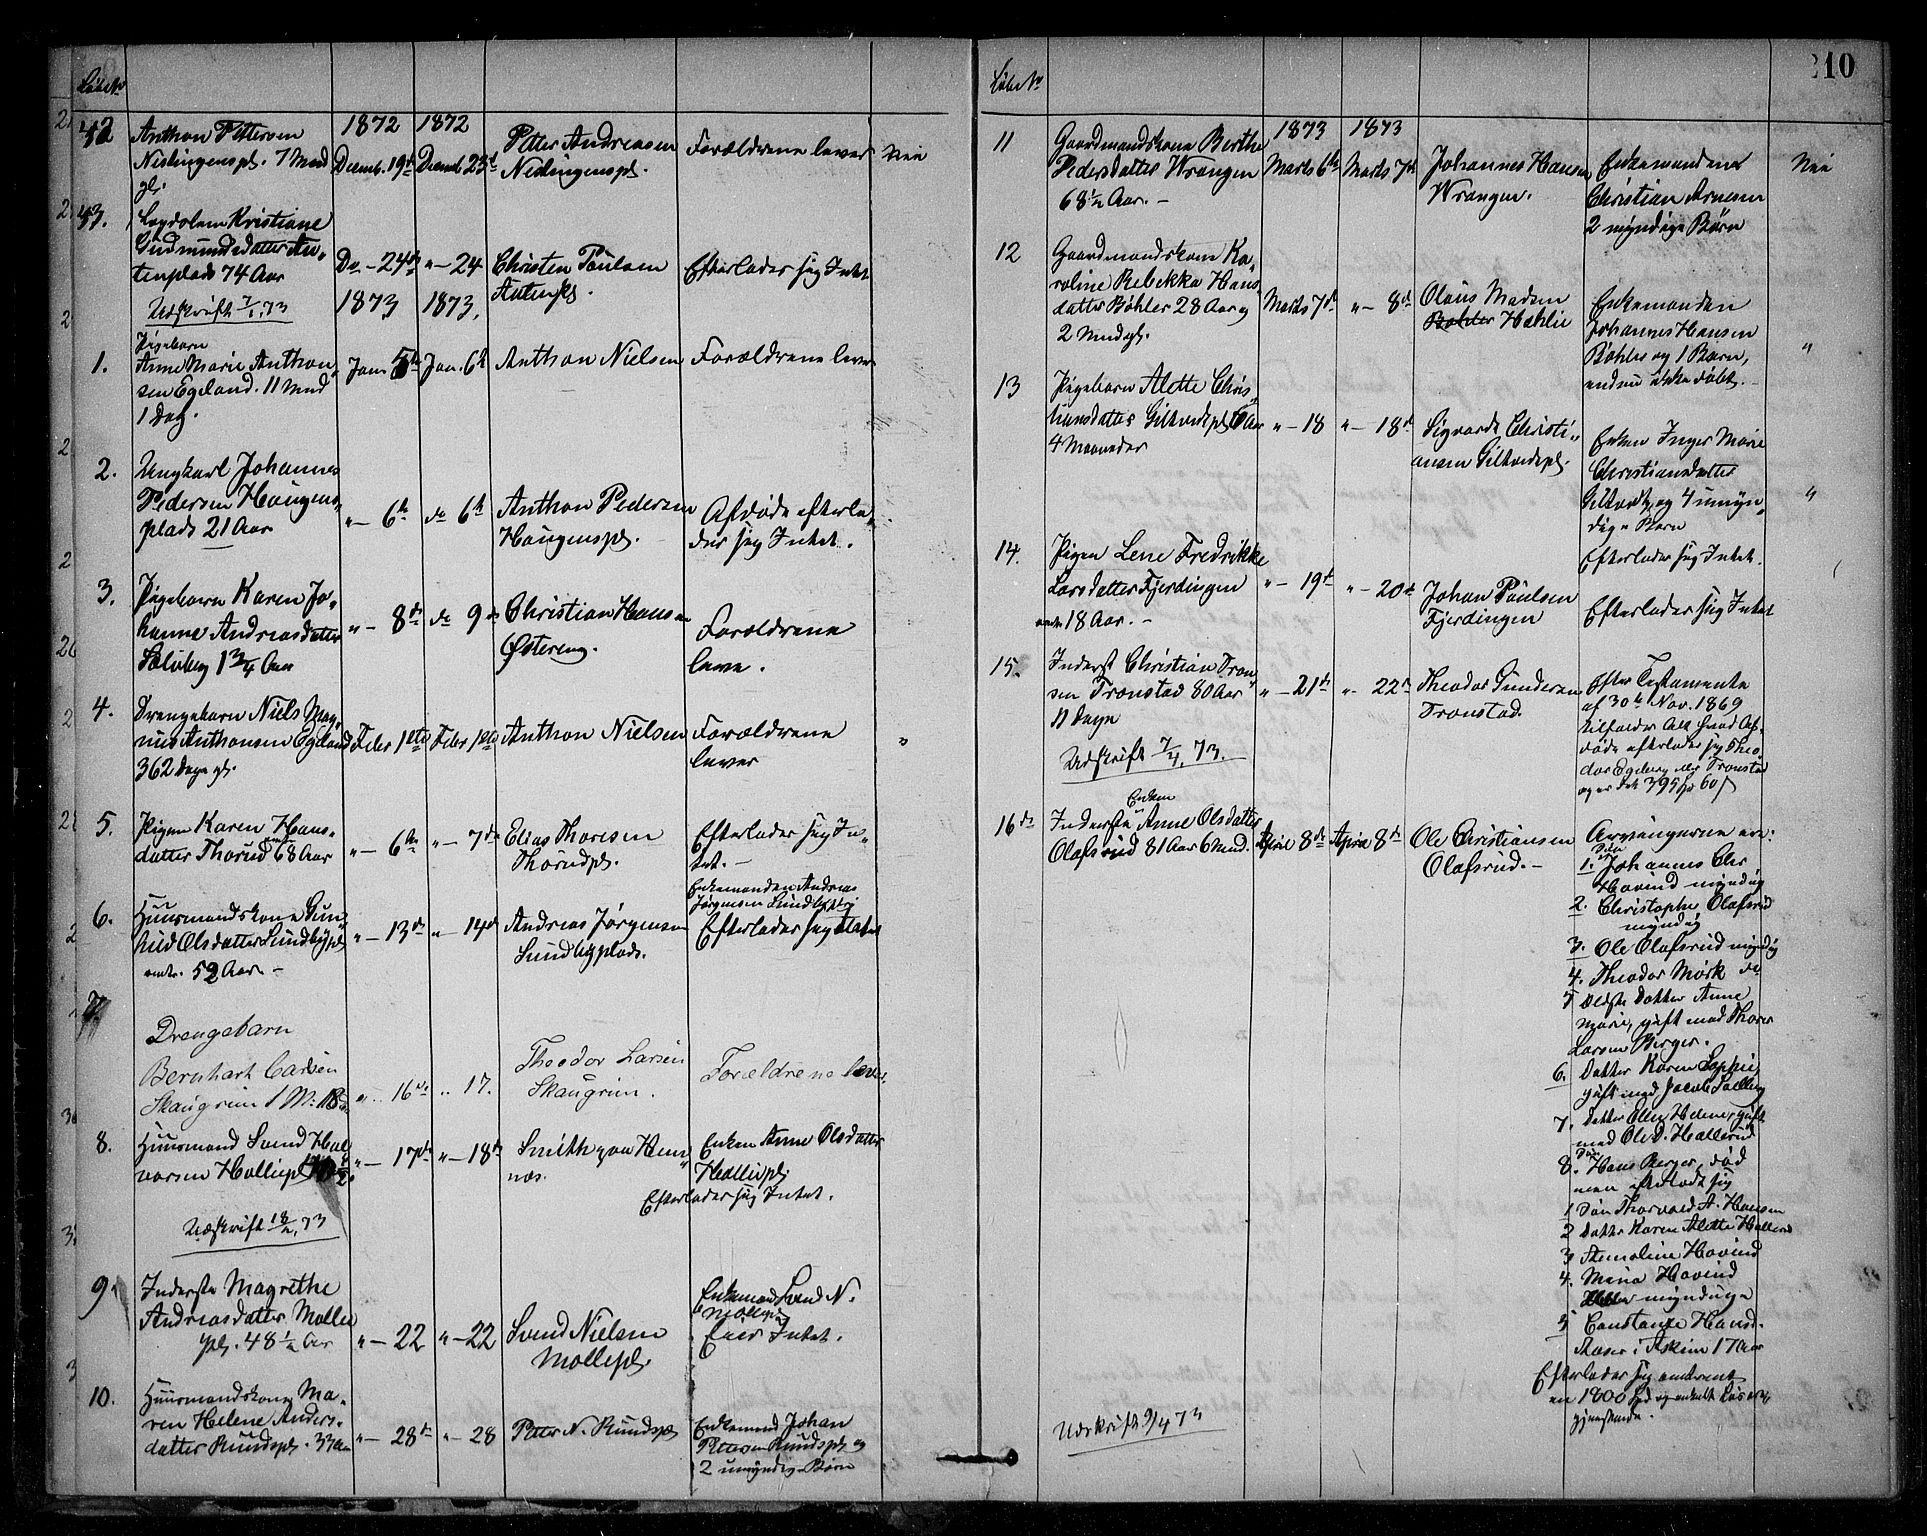 Løbe No
42
Anthon Pettersen
Neslingenspl. 7 Mnd
gl.
1872 1872
Decemb. 19de Decemb 23de
Petter Andreasen
Neslingenspl.
Forældrene lever
Nei
43.
Lægdslem Kristiane
Gudmundsdatter An-
tenplads 74 Aar
Do - 24de " - 24
Christen Paulsen
Antenpl.
Efterlader sig Intet
Udskrift 7/1.73
1873 1873.
1.
Pigebarn
Anne Marie Anthon-
sen Egeland. 11 Mnd
1 Dag.
Jan. 5te Jan. 6te
Anthon Nielsen
Forældrene lever
2.
Ungkarl Johannes
Pedersen Haugens-
plads 21 Aar
" - 6te do 6te
Anthon Pedersen
Haugenspl.
Afdøde efterla-
der sig Intet.
3.
Pigebarn Karen Jo-
hanne Andreasdatter
Solberg 1 3/4 Aar
" - 8de do 9de
Christian Hansen
Østereng.
Forældrene
leve.
4.
Drengebarn Niels Mag-
nus Anthonsen Egeland
362 Dage gl.
Febr 1ste Febr 1ste
Anthon Nielsen
Forældrene
lever
"
5.
Pigen Karen Hans-
datter Thorud 68 Aar
" - 6te " - 7de
Elias Thoresen
Thorudpl.
Efterlader sig In-
tet. -
6.
Huusmandskone Gun-
hild Olsdatter Sundbypl
omtr. 52 Aar. -
" - 13de " - 14de
Andreas Jørgensen
Sundbyplads.
Enkemanden Andreas
Jørgensen Sundbypl
Efterlader sig Intet
7.
Drengebarn
Bernhart Carlsen
Skaugrim 1 M: 18 D.
" - 16de " 17.
Theodor Larsen
Skaugrim.
Forældrene lever.
8.
Huusmand Svend Hal-
vorsen Halliepl
" - 17de " - 18de
Smith paa Hem-
næs.
Enken Anne Olsdatter
Halliepl
Efterlader sig Intet.
Udskrift 18/2.73
9.
Inderste Magrethe
Andreasdatter Mollie
pl. 48 1/2 Aar
" - 22 " - 22
Svend Nielsen
Molliepl.
Enkemand Svend N.
Molliepl
Eier Intet.
10.
Huusmandskone Ma-
ren Helene Anders-
datter Rundspl. 33 Aar
" - 28de " - 28
Petter N. Rundspl
Enkemand Johan
Pettersen Rundspl og
2 umyndig Børn
Løbe No
210
11
Gaardmandskone Berthe
Pedersdatter Wrangen
68 1/2 Aar. -
1873 1873
Marts 6te Marts 7de
Johannes Hansen
Wrangen.
Enkemanden
Christian Arnesen
2 myndige Børn
Nei
12
Gaardmandskone Ka-
roline Rebekka Hans-
datter Bøhler 28 Aar og
2 Mnd gl.
Marts 7de " - 8de
Olaus Madsen
Bøhler Hæhlie
Enkemanden
Johannes Hansen
Bøhler og 1 Barn,
endnu ikke døbt. -
"
13
Pigebarn Alette Chris-
tiansdatter Giltvedtpl 6 Aar
4 Maaneder
" - 18 " - 18de
Sigvardt Christi-
ansen Giltvedtpl.
Enken Inger Marie
Christiansdatter
Giltvedtpl og 4 umyn-
dige Børn
Efterlader sig Intet.
"
14.
Pigen Lene Fredrikke
Larsdatter Fjerdingen
omtr. 18 Aar. -
" - 19de " - 20de
Johan Paulsen
Fjerdingen
Efterlader sig Intet
15.
Inderst Christian Tron-
sen Tronstad 80 Aar
11 Dage
" - 21de " - 22de
Theodor Gundersen
Tronstad.
Efter Testamente
af 30te Nov. 1869
tilfalder Alt hvad Af-
døde efterlader sig Theo-
dor Egeberg eller Tronstad
og er dets 395 Spd 60 s
Udskrift 7/4.73.
16de
Enken
Inderste Anne Olsdatter
Olafsrud 81 Aar 6 Mnd.
April 8de April 8de
Ole Christiansen
Olafsrud. -
Arvingerne ere:
Søn
1. Johannes Chr
Hovind myndig
2. Christopher Olafsrud
myndig
3. Ole Olafsrud myndig
4. Theodor Mørk do
5 Ældste Datter Anne
Marie, gift med Thorer
Larsen Berger.
6. Datter Karen Sophie,
gift med Jacob Solberg
7. Datter Elen Helene, gift
med Ole D. Hallerud
Søn
8. Hans Berger, død
men efterladt sig
1 Søn Thorvald A. Hansen
2 Datter Karen Alette Hallerud
3 Annoline Hovind
4. Mina Hovind
myndige
5 Constanse Hansd.
Moser i Askim 17 Aar
Efterlader sig omtrent
en 1800 Spd og enkelt Løsøre-
gjenstande.
Udskrift 9/4 73